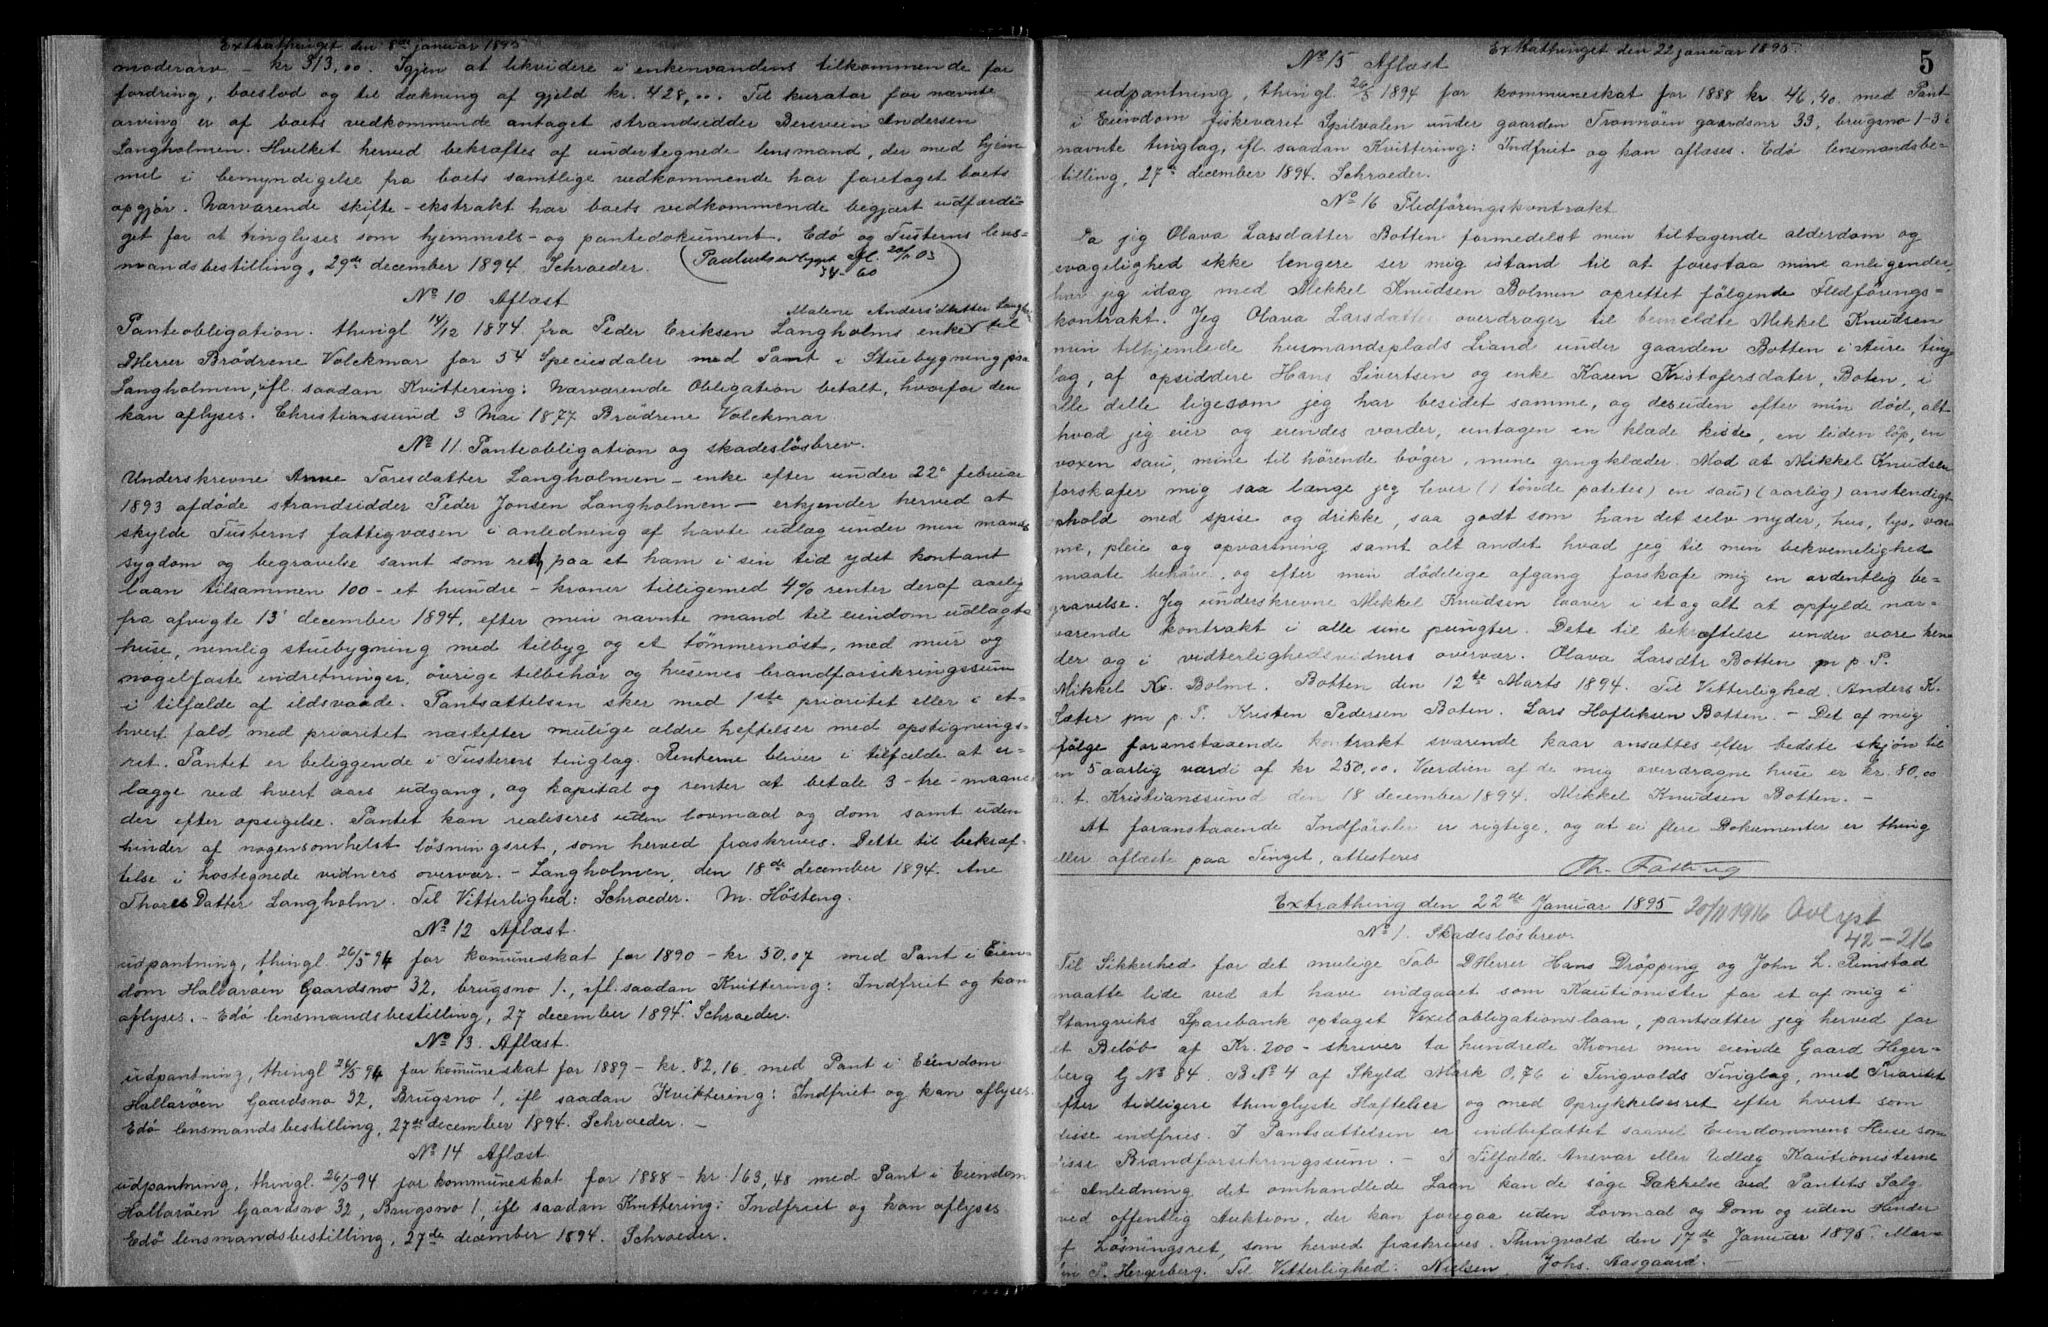 Extrathinget den 8de januar 1895
moderarv – kr 313,00. Igjen at likvidere i enkenvandens tilkommende for
fordring, boeslod og til dækning af gjeld kr. 428,00. Til kurator for nævnte
arving er af boets vedkommende antaget strandsidder Bersvein Andersen
Langholmen. Hvilket herved bekræftes af undertegnede lensmand, der med hjem-
mel i bemyndigelse fra boets samtlige vedkommende har foretaget boets
opgjør. Nærværende skifte-ekstrakt har boets vedkommende begjært udfærdi-
get for at tinglyses som hjemmels- og pantedokument. Edø og Tusterns lens-
mandsbestilling, 29de december 1894. Schroeder.
No 10 Aflæst
Malene Andersdatter
Panteobligation. thingl 14/12 1874 fra Peder Eriksen Langholms enke til
DHerrer Brödrene Volckmar for 54 Speciesdaler med Pant i Stuebygning paa
Langholmen, ifl. saadan Kvittering: Nærværende Obligation betalt, hvorfor den
kan aflyses. Christianssund 3 Mai 1877 Brödrene Volckmar
No 11. Panteobligation og skadesløsbrev.
Underskrevne Anne Toresdatter Langholmen – enke efter under 22 februar
1893 afdöde strandsidder Peder Jonsen Langholmen – erkjender herved at
skylde Tusterns fattigvæsen i anledning af havte udlæg under min mands
sygdom og begravelse samt som rest paa et ham i sin tid ydet kontant
laan tilsammen 100 – et hundre – kroner tilligemed 4% renter deraf aarlig
fra afvigte 13 december 1894, efter min nævnte mand til eiendom udlagte
huse, nemlig stuebygning med tilbyg og et tömmernöst, med mur og
nagelfaste indretninger, övrige tilbehör og husenes brandforsikringssum
i tilfælde af ildsvaade. Pantsættelsen sker med 1ste prioritet eller i et-
hvert fald med prioritet næstefter mulige ældre heftelser med opstignings-
ret. Pantet er beliggende i Tusterens tinglag. Renterne bliver i tilfælde at er-
lægge ved hvert aars udgang, og kapital og renter at betale 3 – tre – maane-
der efter opsigelse. Pantet kan realiseres uden lovmaal og dom samt uden
hinder af nogensomhelst lösningsret, som herved fraskrives. Dette til bekræf-
telse i hostegnede vidners overvær. – Langholmen, den 18de december 1894. Ane
Thores Datter Langholm. Til Vitterlighed: Schroeder. M. Hösteng.
No 12 Aflæst.
udpantning, thingl. 26/5 94 for komuneskat for 1890 – kr. 50,07 med Pant i Eien-
dom Hallaröen Gaardsno 32, brugsno 1., ifl. saadan Kvittering: Indfriet og kan
aflyses. – Edö lensmandsbestilling, 27 december 1894. Schroeder.
No 13. Aflæst.
udpantning, thingl 26/5 94 for komuneskat for 1889 – kr. 82,16. med Pant i Eiendom
Hallaröen Gaardsno 32, Brugsno 1, ifl saadan Kvittering: Indfriet og kan aflyses.
Edö lensmandsbestilling, 27de december 1894. Schroeder. –
No 14 Aflæst.
udpantning, thingl. 26/5 94 for kommuneskat for 1888 – kr. 163,48 med Pant i Eiendom
Hallaröen Gaardsno 32, Brugsno 1, ifl saadan Kvittering: Indfriet og kan aflyses
Edö lensmandsbestilling, 27de december 1894. Schroeder.
Extrathinget den 22 januar 1895.
5
No 15 Aflæst
udpantning, thingl 26/5 1894 for kommuneskat for 1888 kr. 46,40. med Pant
i Eiendom fiskeværet Spilvalen under gaarden Tromnöen gaardsnr 33, brugsno 1-3 i
nævnte tinglag, ifl. saadan Kvittering: Indfriet og kan aflæses. Edö lensmandsbe-
tilling, 27de december 1894. Schroeder.
No 16 Flædföringskontrakt
Da jeg Olava Larsdatter Botten formedelst min tiltagende alderdom og
svagelighed ikke lengere ser mig istand til at forestaa mine anligender,
har jeg idag med Mikkel Knudsen Bolmen oprettet fölgende Flædförings-
kontrakt. Jeg Olava Larsdatter overdrager til bemeldte Mikkel Knudsen
min tilhjemlede husmandsplads Liand under gaarden Botten i Aure ting-
lag, af opsiddere Hans Sivertsen og enke Karen Kristofersdater, Boten, i
alle delle ligesom jeg har besidet samme, og desuden efter min död, alt
hvad jeg eier og eiendes vorder, untagen en klæde kiste, en liden löp, en
voxen sau, mine til hörende böger, mine gangklæder. Mod at Mikkel Knudsen
forskafer mig saa længe jeg lever (1 tönde potetes) en sau) (aarlig) anstendigt
ophold med spise og drikke, saa godt som han det selv nyder, hus, lys, var-
me, pleie og opvartning samt alt andet hvad jeg til min bekvemelighed
maate behöve, og efter min dödelige afgang forskafe mig en ordentlig be-
gravelse. Jeg underskrevne Mikkel Knudsen lover i et og alt at opfylde nær-
værende kontrakt i alle sine pungter. Dete til bekræftelse under vore hen-
der og i vidterlighedsvidners overvær. Olava Larsdtr Botten m p. P.
Mikkel Kn. Bolme. Botten den 12te Marts 1894. Til Vitterlighed. Anders K.
Sæter m p. P. Kristen Pedersen Boten. Lars Hofliksen Botten. – Det af mig
ifölge foranstaaende kontrakt svarende kaar ansættes efter bedste skjön til
en 5 aarlig værdi af kr 250,00. Værdien af de mig overdragne huse er kr. 80,00
p. t. Kristianssund den 18 december 1894. Mikkel Knudsen Botten. –
At foranstaaende Indförsler er rigtige, og at ei flere Dokumenter er thing
eller aflæste paa Tinget, attesteres
Extrathing den 22de Januar 1895 20/11 1916 Avlyst
42 – 216
No 1. Skadesløsbrev.
Til Sikkerhed for det mulige Tab DHerrer Hans Dröpping og John L. Rimstad
maatte lide ved at have indgaaet som Kautionister for et af mig i
Stangviks Sparebank optaget Vexelobligationslaan, pantsætter jeg herved for
et Belöb af Kr. 200 – skriver to hundrede Kroner min eiende Gaard Heger-
berg G No 84. B No 4 af Skyld Mark 0,76 i Tingvolds Tinglag, med Prioritet
efter tidligere thinglyste Hæftelser og med Oprykkelsesret efter hvert som
disse indfries. I Pantsættelsen er indbefattet saavel Eiendommens Huse som
disse Brandforsikringssum. – I Tilfælde Ansvar eller Udlæg Kautionisterne
i Anledning det omhandlede Laan kan de söge Dækkelse ved Pantets Salg
ved offentlig Auktion, der kan foregaa uden Lovmaal og Dom og uden Hinder
af Lösningsret, som herved fraskrives. Thingvold den 17de Januar 1895. Mar-
P. Hergerberg. Til Vitterlighed: Nielsen. Johs. Aasgaard. –